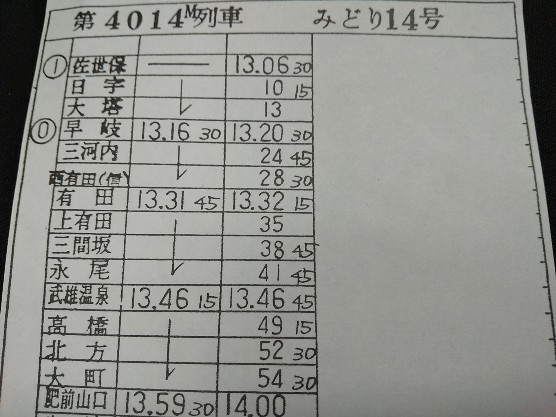 第4014M列車 みどり14号
① 佐世保 13.06 30
日宇 10 15
大塔 13
⓪ 早岐 13.16 30 13.20 30
三河内 24 45
西有田(信) 28 30
有田 13.31 45 13.32 15
上有田 35
三間坂 38 45
永尾 41 45
武雄温泉 13.46 15 13.46 45
高橋 49 15
北方 52 30
大町 54 30
肥前山口 13.59 30 14.00